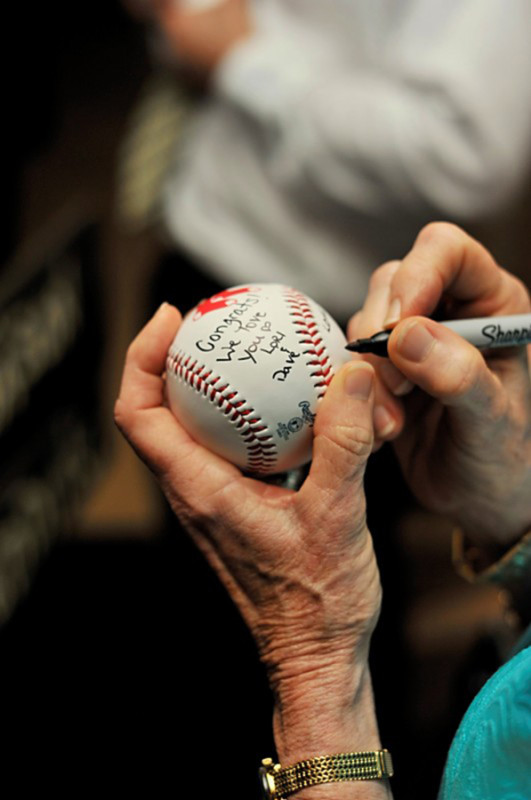 Congrats!
We love
you so
Lori
Dave
Sharpie